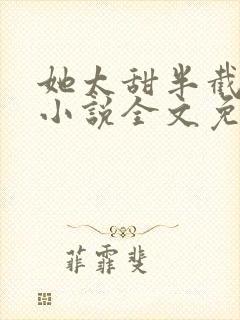 她太甜半截
小说全文免
菲霏斐